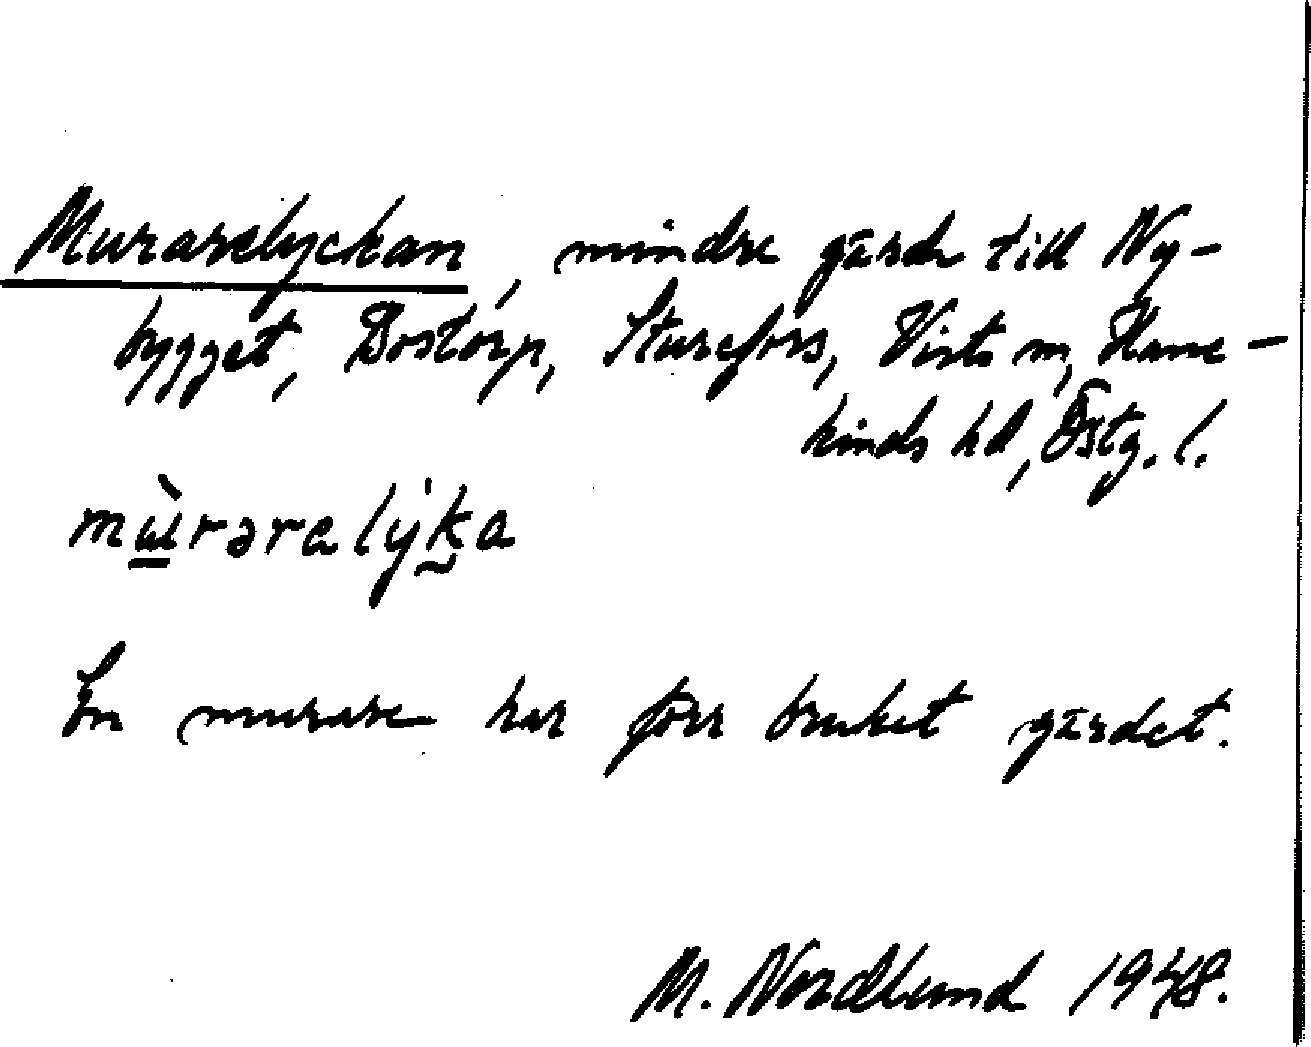 Murarelyckan, mindre gärde till Ny-
bygget, Bostorp, Sturefors, Vists sn, Hane-
kinds hd, Östg. l.
mùrarelyka
En murare har förr brukat gärdet.
M. Nordlund 1948.